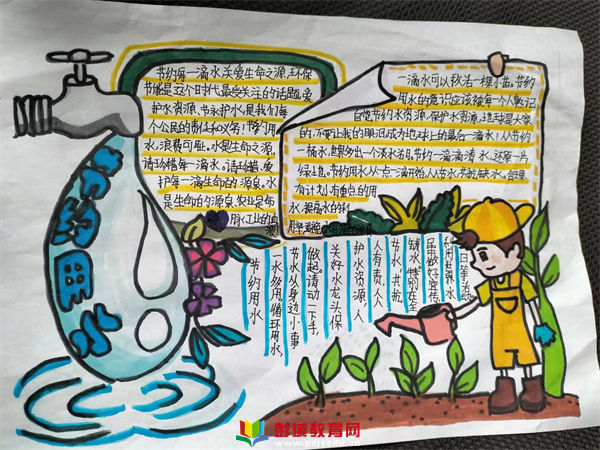 节约用水
节约每一滴水关爱生命之源,环保
节能是这个时代最受关注的话题,爱
护水资源,节水护水是我们每
个公民的责任和义务!节约用
水,浪费可耻。水是生命之源,
请珍惜每一滴水。请珍惜、爱
护每一滴生命的源泉。水
是生命的源泉、农业是命
脉、工业的血
液!
一滴水可以救活一棵小苗。节约
用水的意识应该被每个人熟记
自觉节约水资源,保护水资源,地球是大家
的,不要让我的眼泪成为地球上的最后一滴水!从节约
一桶水,
节约一滴滴清水,还原一片
绿地。节约用水从点一滴开始,人人节水,共抗缺水。合理
有计划,有重点的用
水,
日
居中做好宣传
缺水,特别在生
节水,共抗
人有责,人人
护水资源,人
关好水龙头保
做起,请动一下手,
节水从身边小事
一水多用,循环用水,
节约用水
彭城教育网
www.pcjyedu.cn